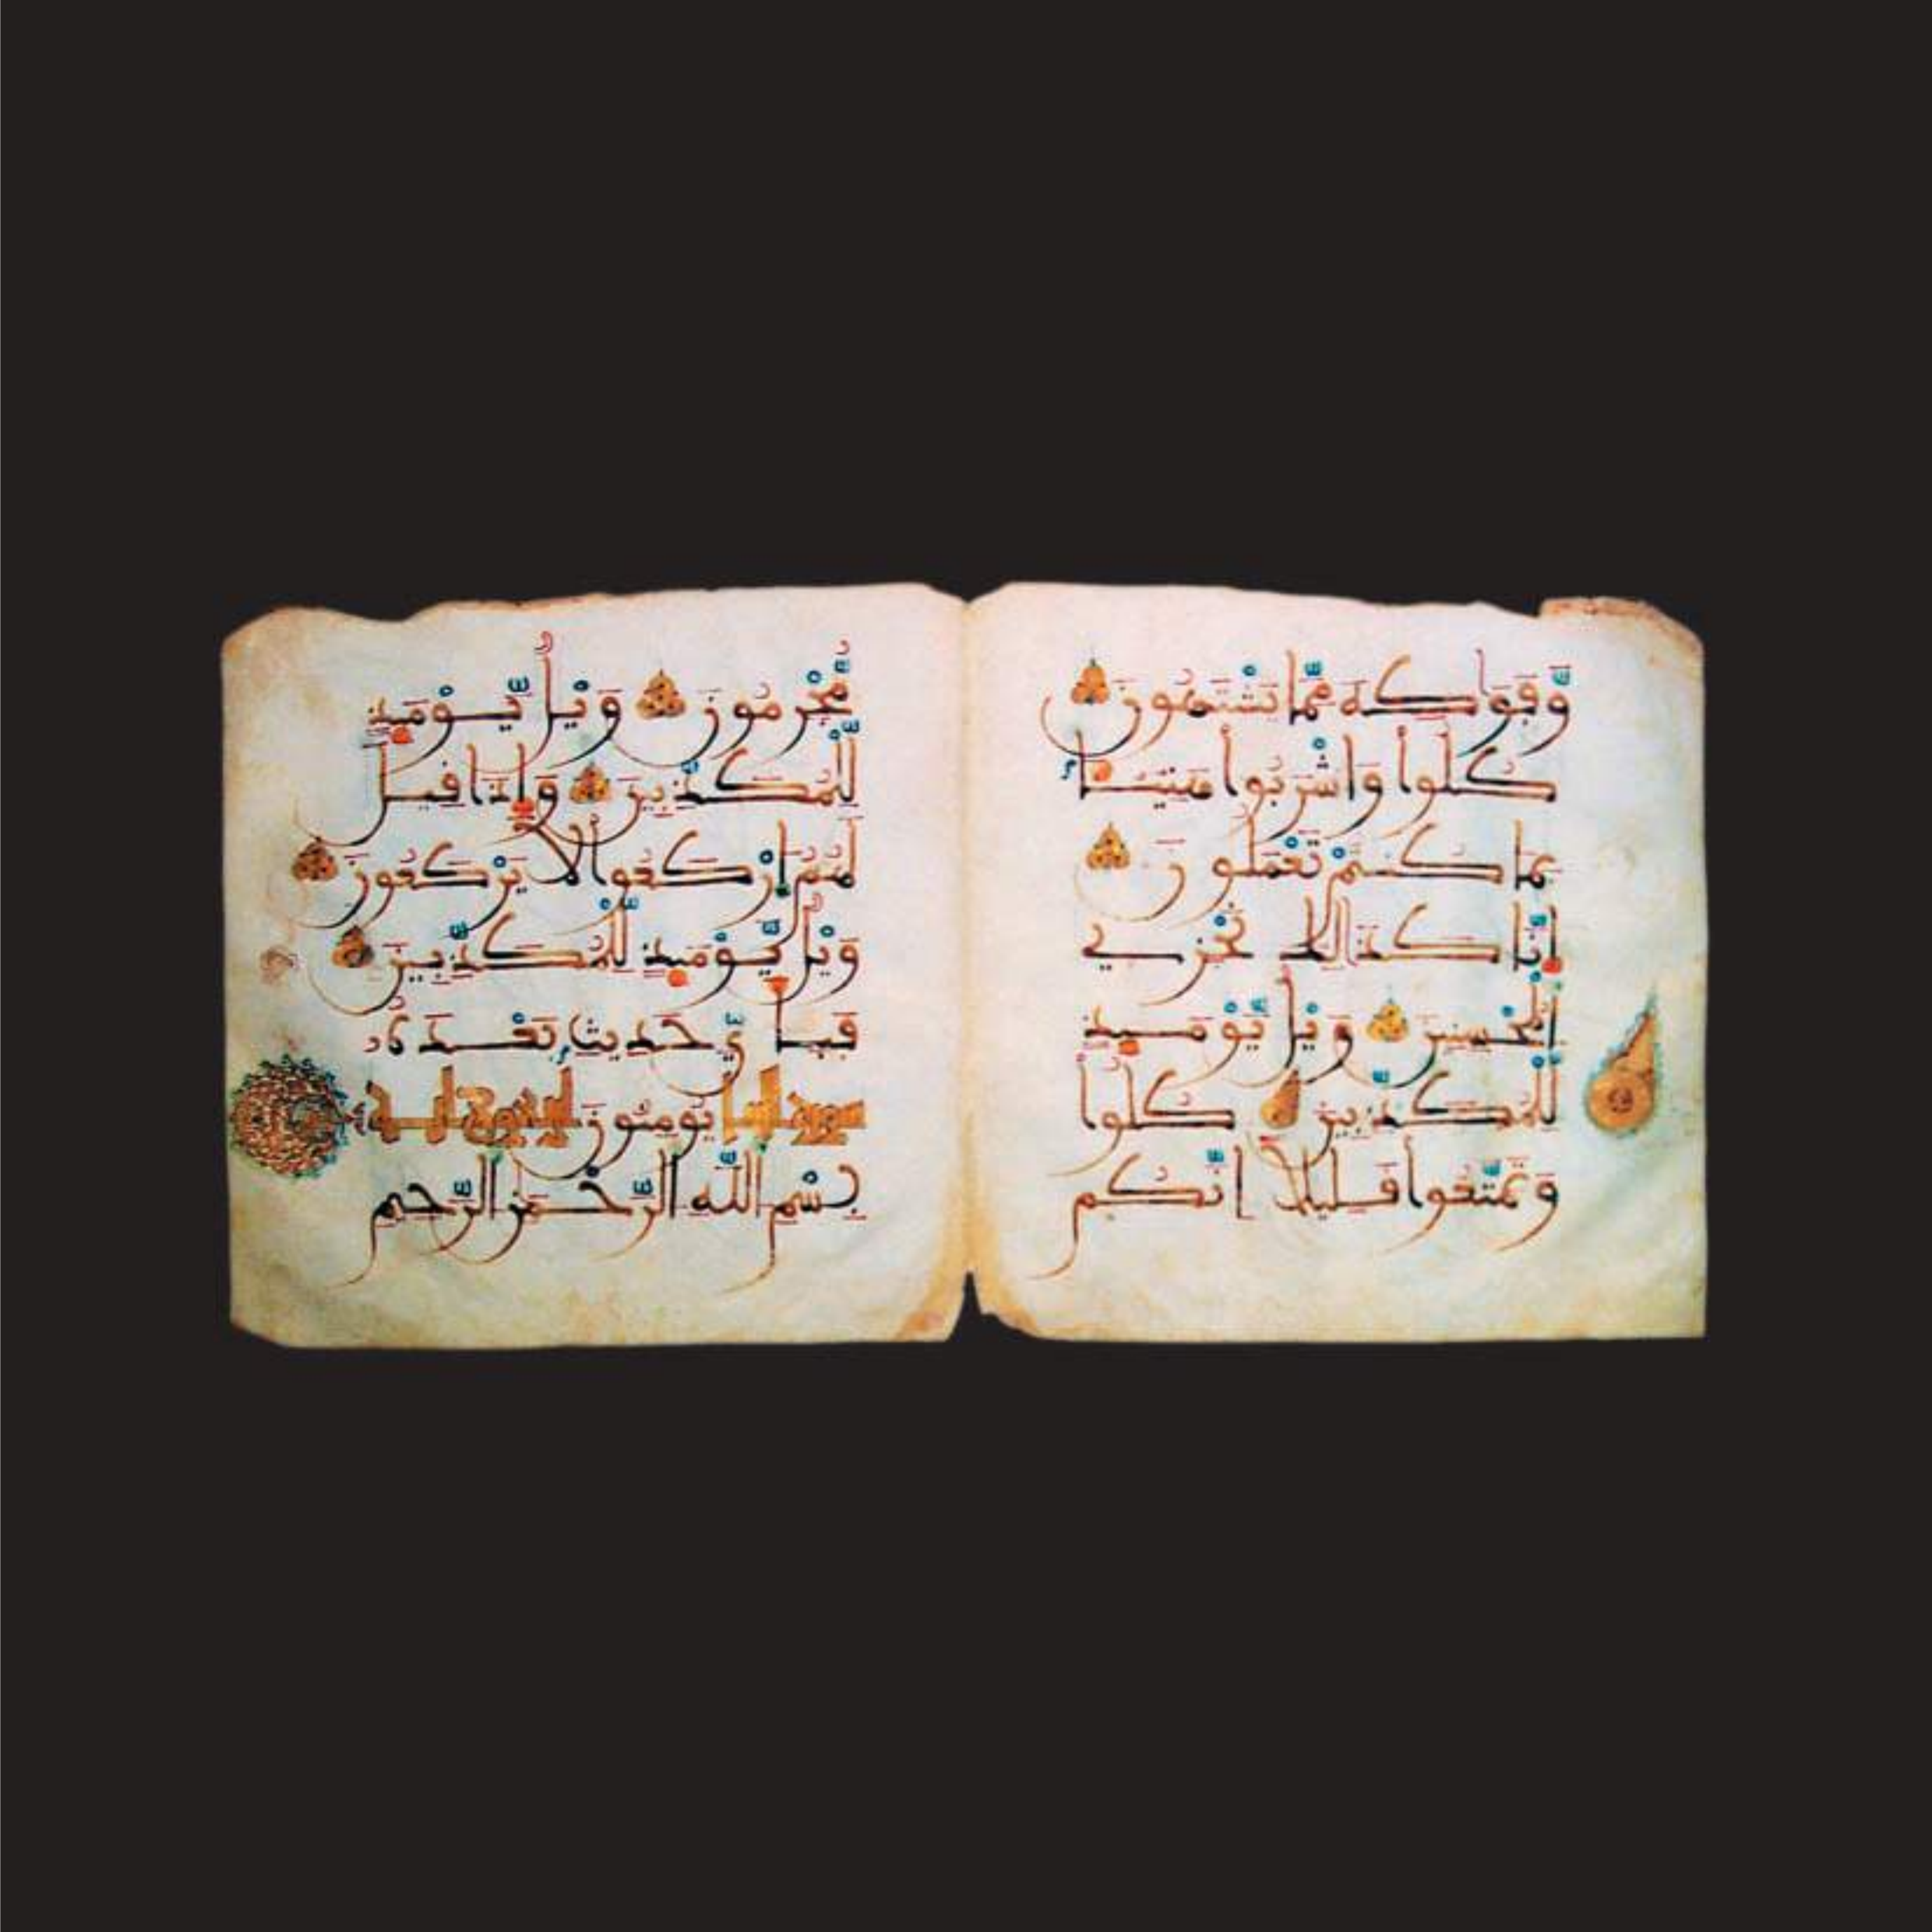 وَّفَوَاكِهَ مِمَّا يَشْتَهُونَ
كُلُوا وَاشْرَبُوا هَنِيئًا
بِمَا كُنْتُمْ تَعْمَلُونَ
إِنَّا كَذَلِكَ نَجْزِي
الْمُحْسِنِينَ وَيْلٌ يَّوْمَئِذٍ
لِّلْمُكَذِّبِينَ كُلُوا
وَتَمَتَّعُوا قَلِيلًا إِنَّكُم
مُّجْرِمُونَ وَيْلٌ يَّوْمَئِذٍ
لِّلْمُكَذِّبِينَ وَإِذَا قِيلَ
لَهُمُ ارْكَعُوا لَا يَرْكَعُونَ
وَيْلٌ يَّوْمَئِذٍ لِّلْمُكَذِّبِينَ
فَبِأَيِّ حَدِيثٍ بَعْدَهُ
سورة يُومِنُونَ اية
بِسْمِ اللَّهِ الرَّحْمَنِ الرَّحِيمِ